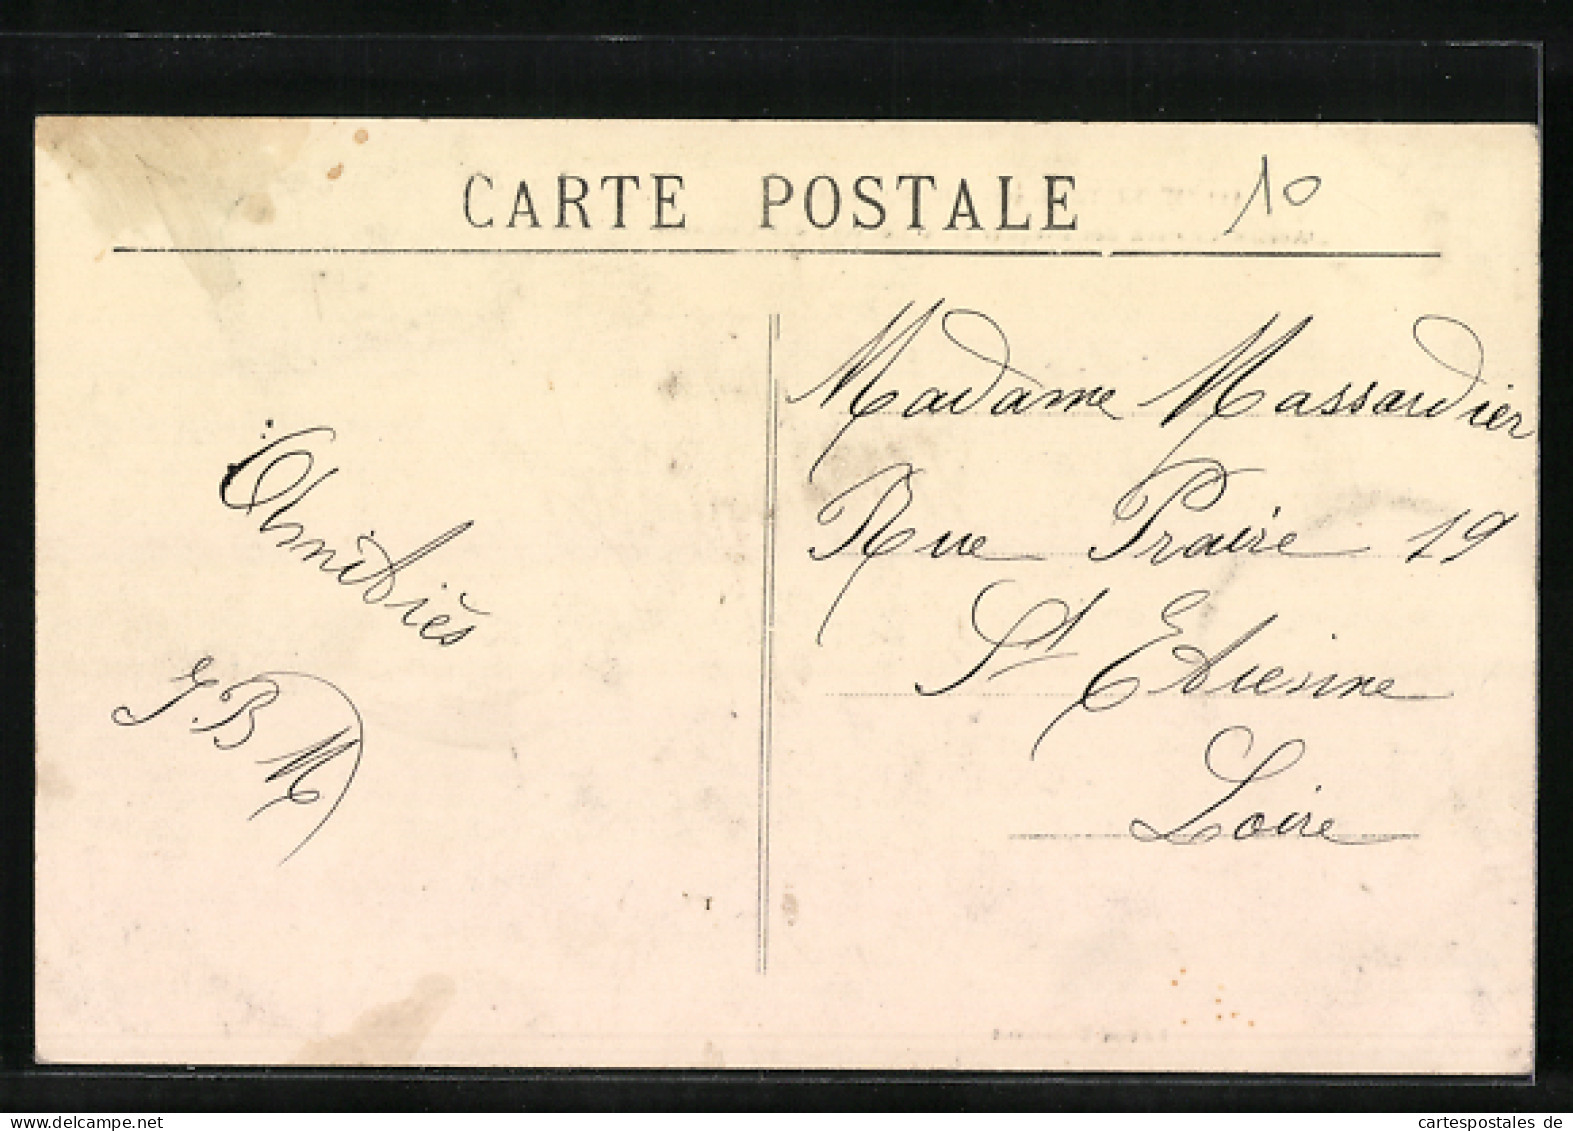 CARTE POSTALE
10
Amitiés
J.B M
Madame Massardier
Rue Praire 19
St Etienne
Loire
1
cartespostales de